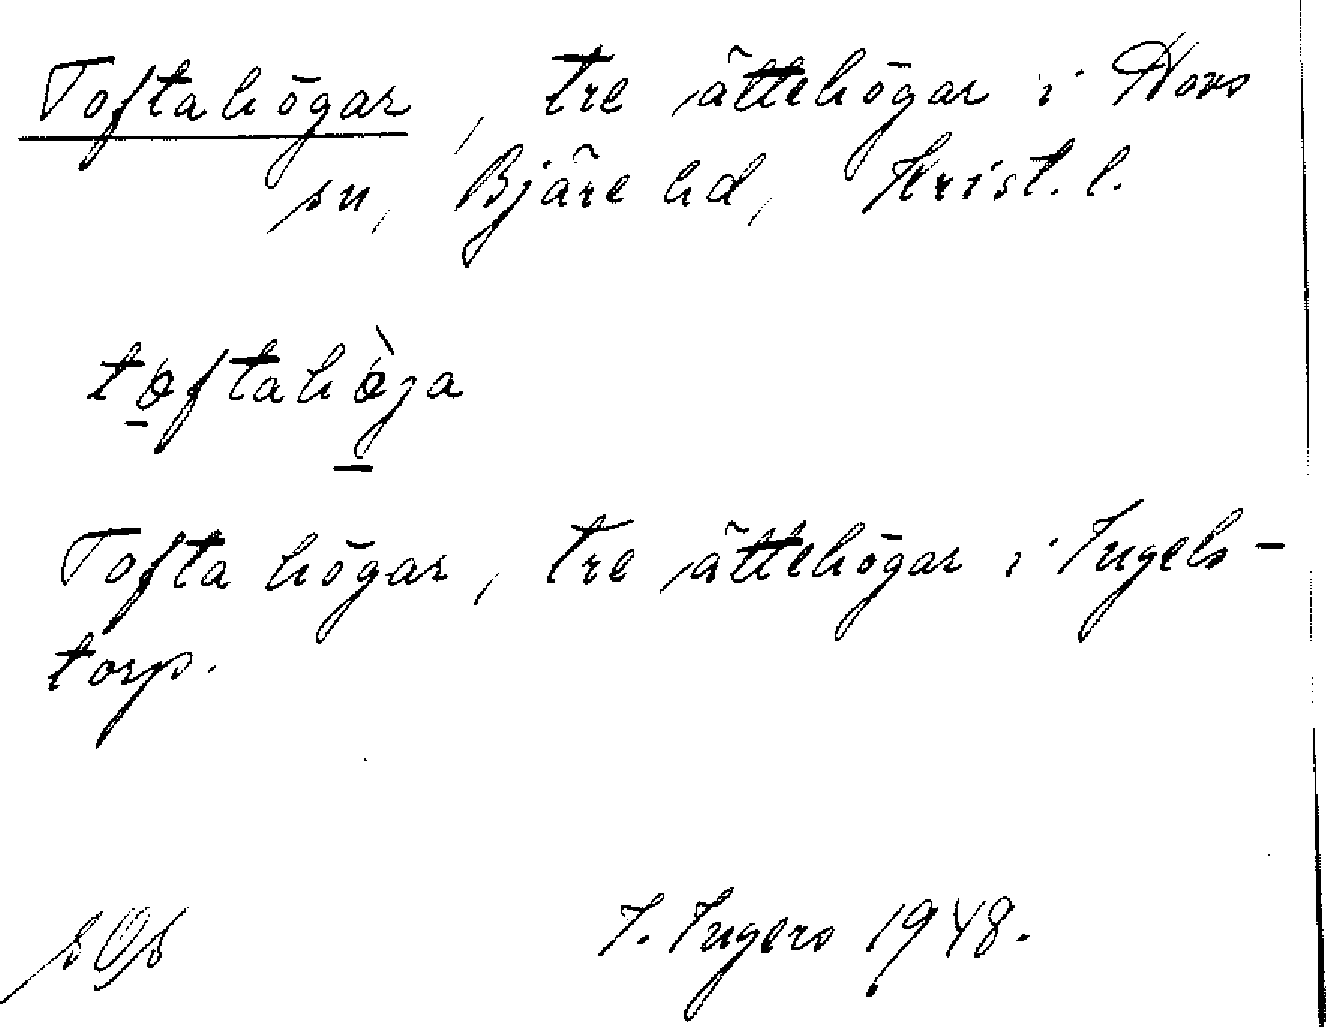 Toftahögar, tre ättehögar i Hovs
sn, Bjäre hd, Krist. l.
tøftahø̀ja
Tofta högar, tre ättehögar i Ingels-
torp.
I. Ingers 1948.